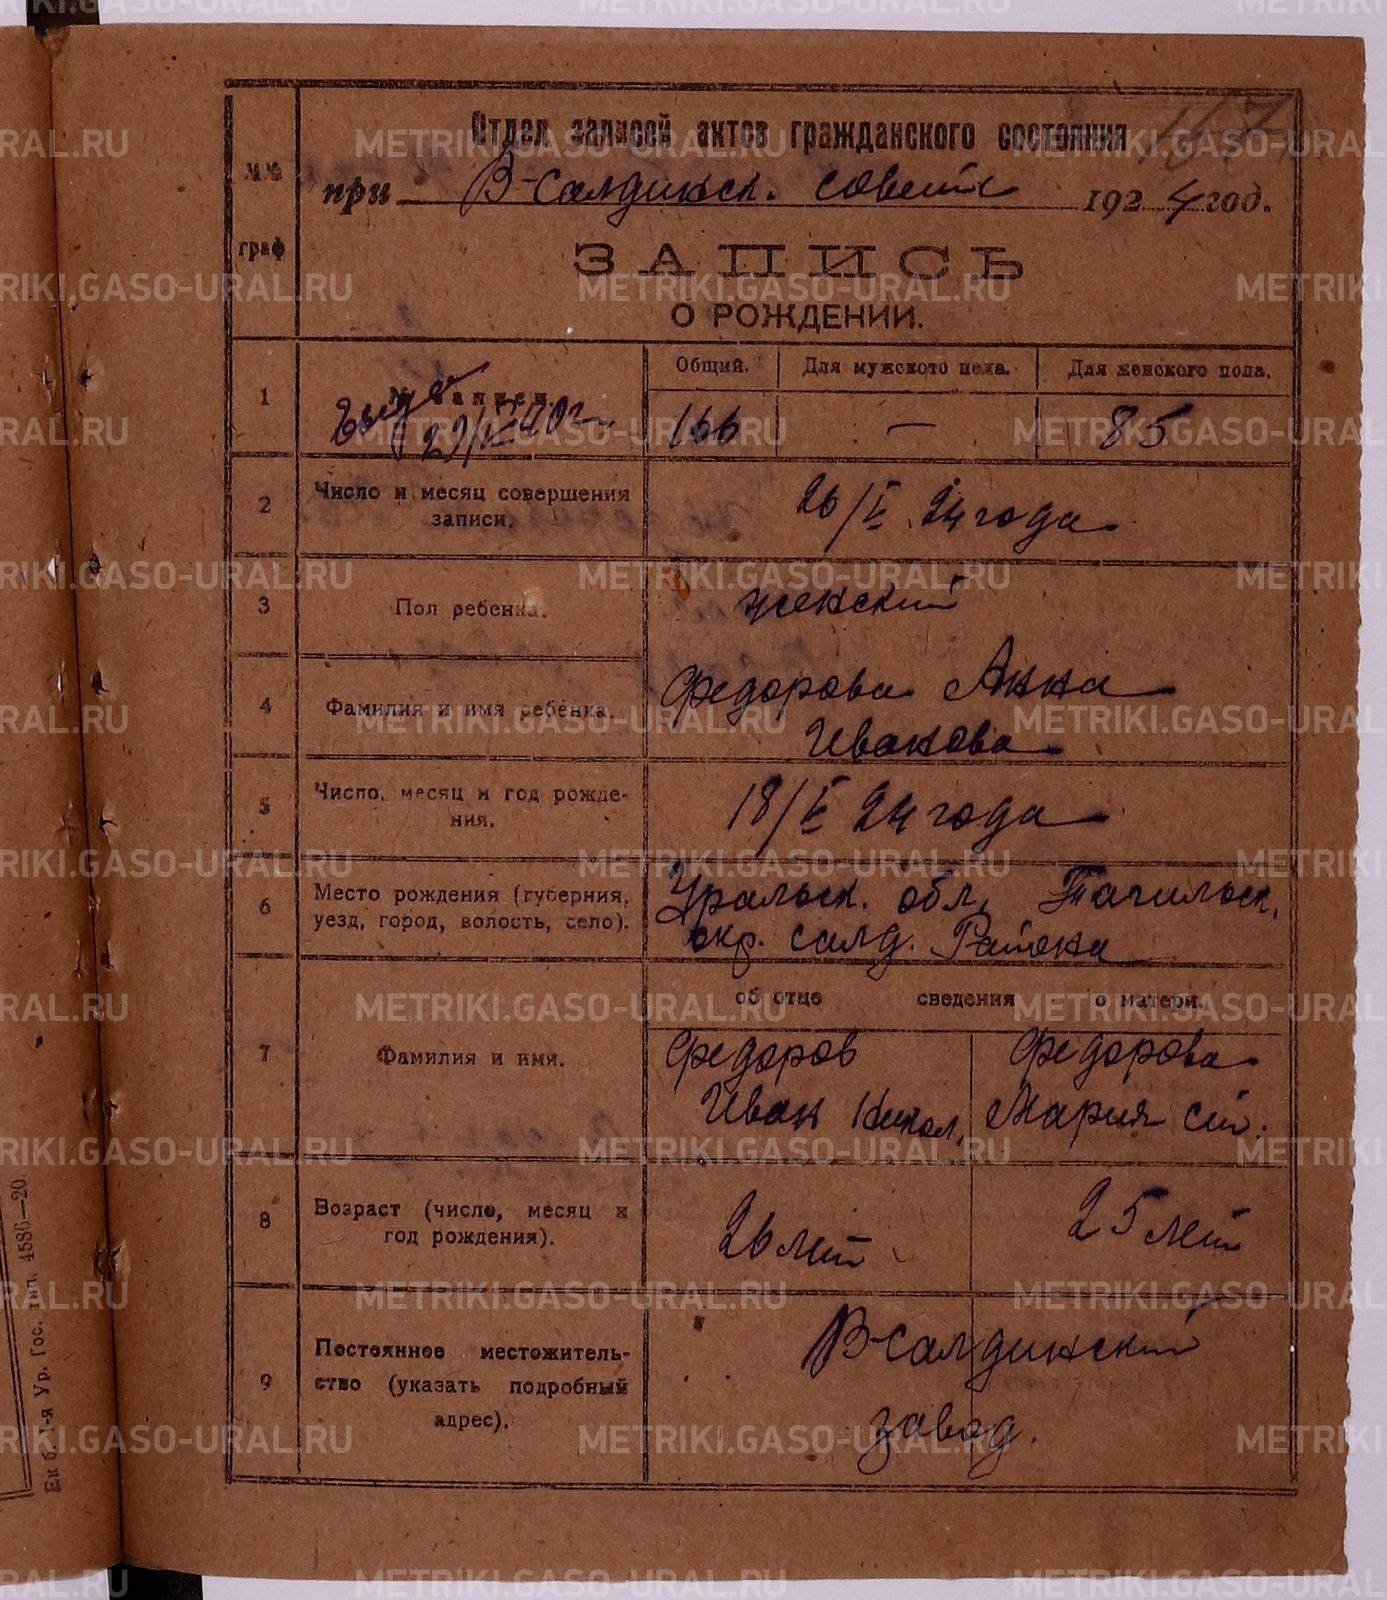 167
Отдел записей актов гражданского состояния
№№ граф
при В-Салдинск. совете 1924 год.
ЗАПИСЬ
О РОЖДЕНИИ.
1
№ записи
29/V 40 г.
Общий. Для мужского пола. Для женского пола.
166 — 85
2 Число и месяц совершения записи. 26/V 24 года
3 Пол ребенка. женский
4 Фамилия и имя ребенка. Федорова Анна
Иванова
5 Число, месяц и год рожде-
ния. 18/V 24 года
6 Место рождения (губерния, Уральск. обл. Тагильск.
уезд, город, волость, село). окр. салд. Района
об отце сведения о матери.
7 Фамилия и имя. Федоров Федорова
Иван Никол. Мария ст.
8 Возраст (число, месяц и
год рождения). 26 лет 25 лет
9 Постоянное местожитель- В-Салдинский
ство (указать подробный
адрес). завод.
Ек б. 1-я Ур. Гос. тип. 4586—20.
METRIKI.GASO-URAL.RU